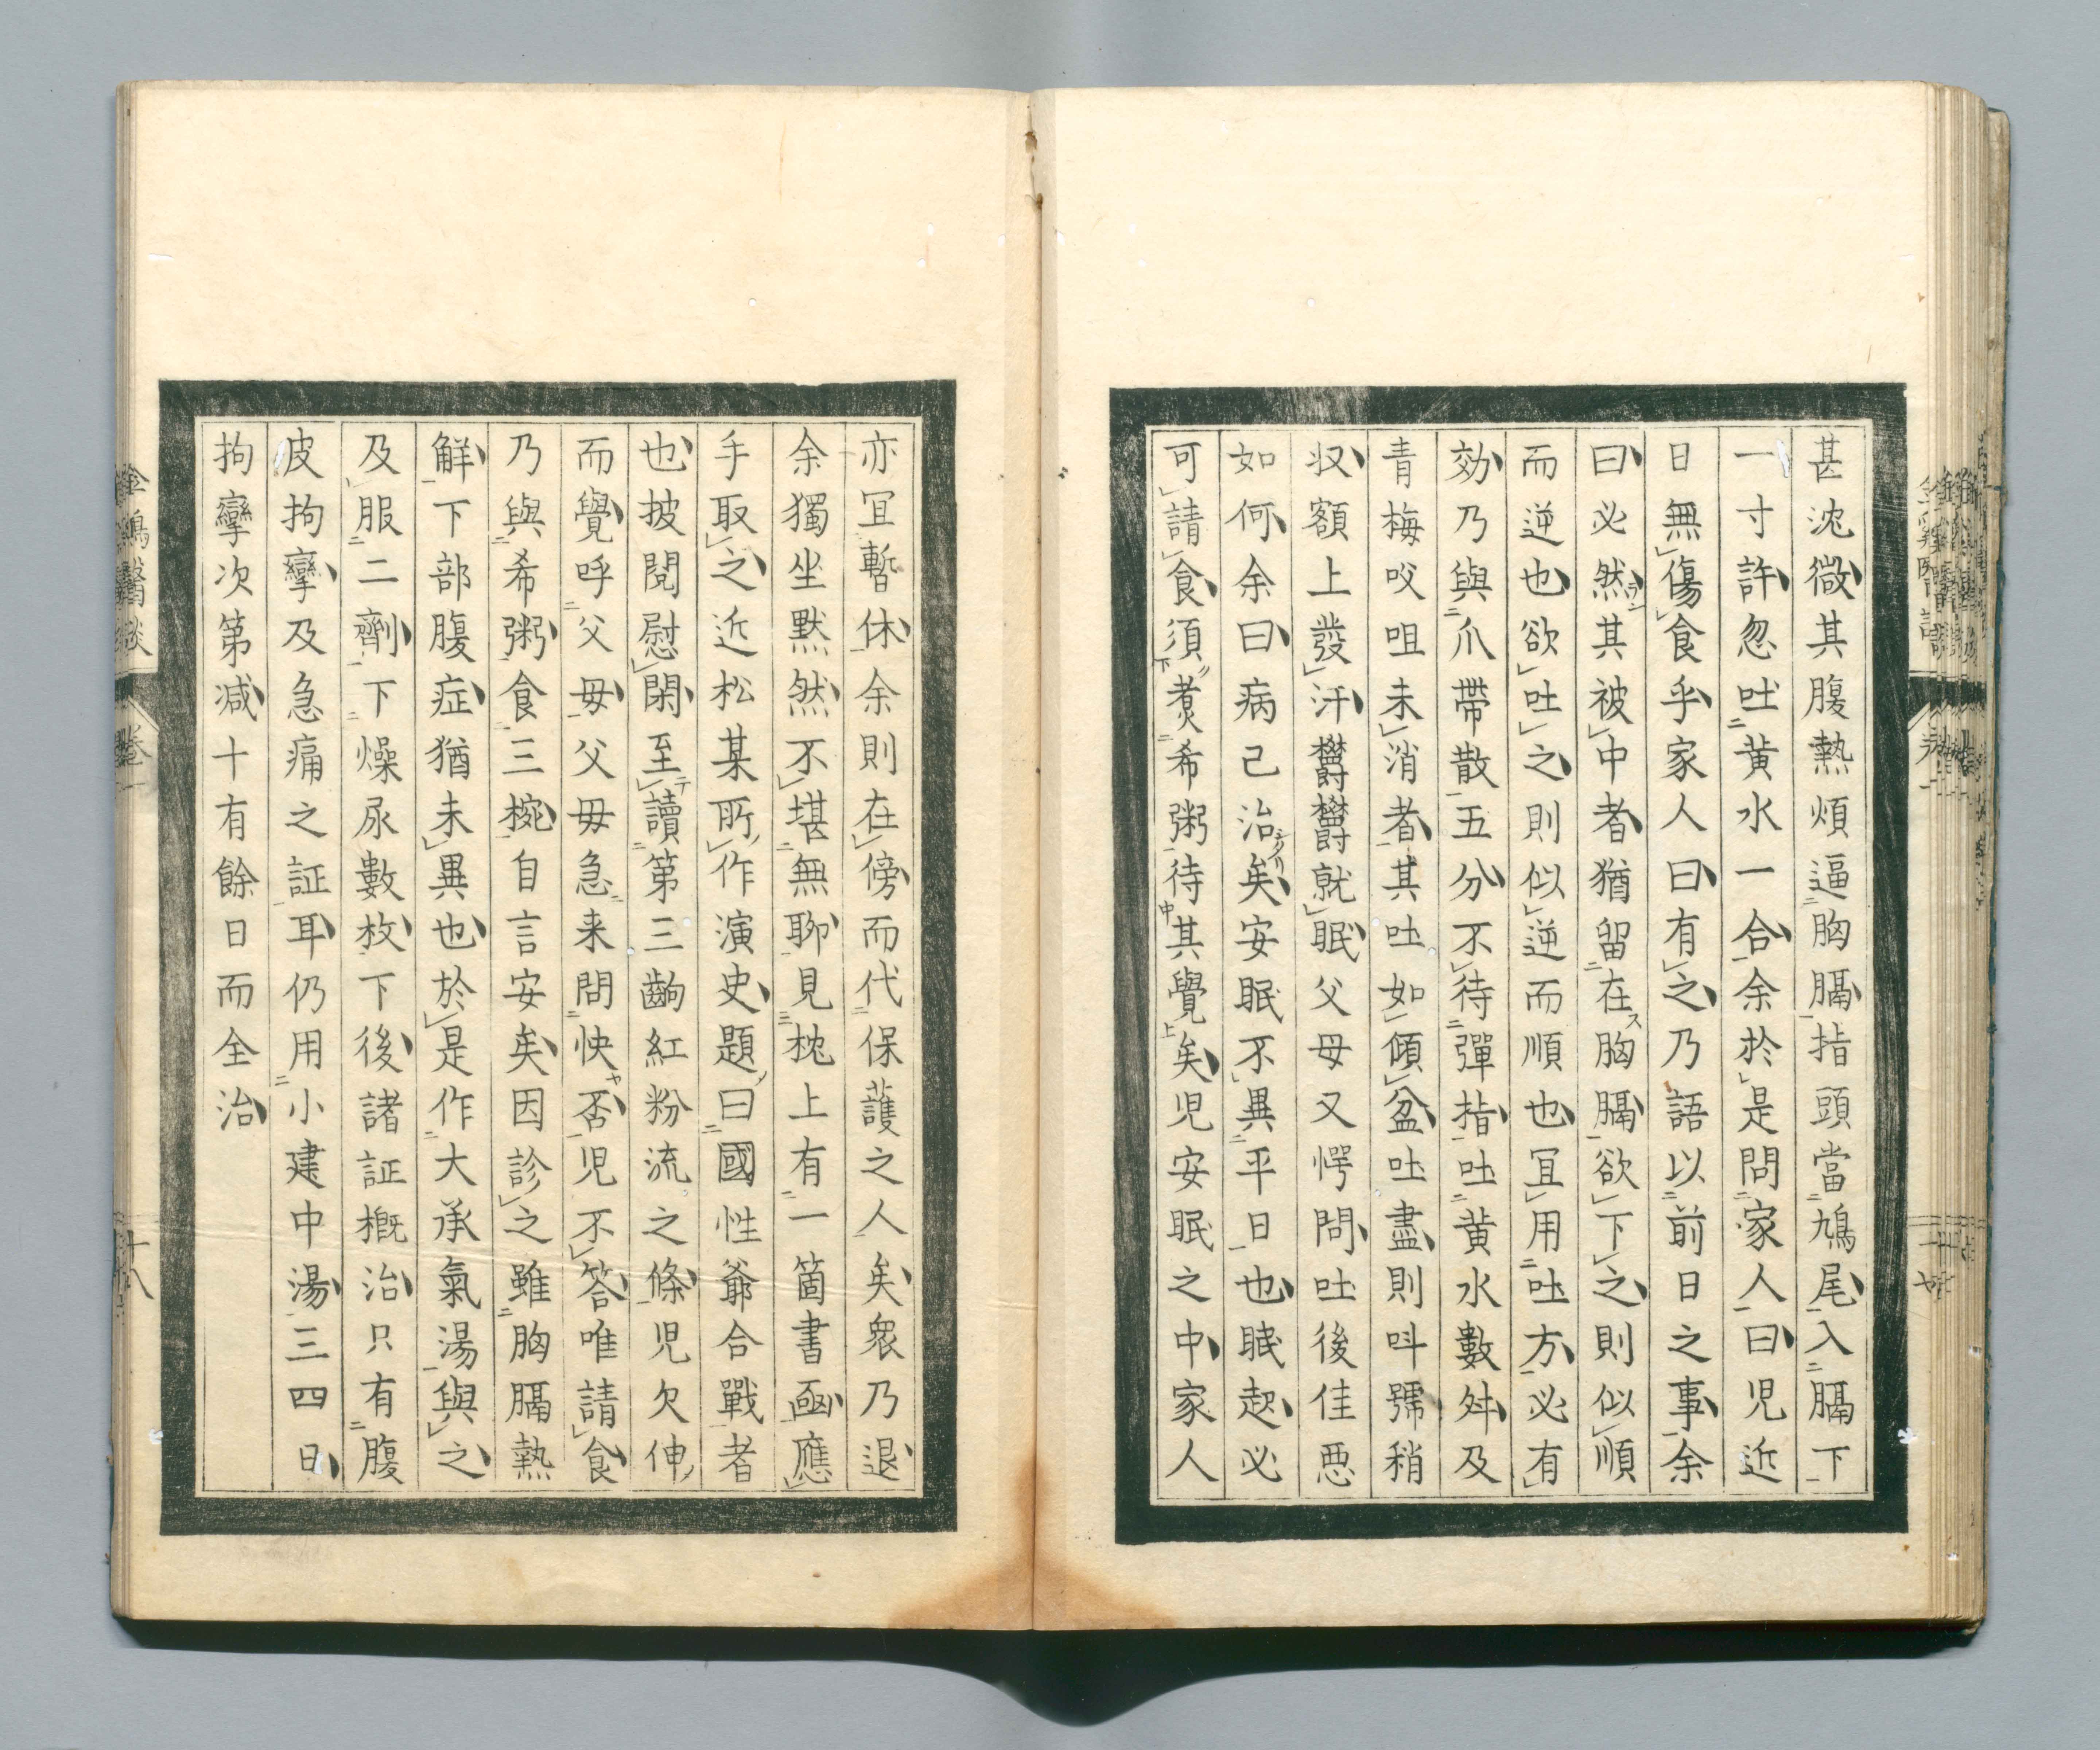 甚沈微其腹熱煩逼胸膈指頭當鳩尾入膈下
一寸許忽吐黄水一合余於是問家人曰児近
日無傷食乎家人曰有之乃語以前日之事余
曰必然其被中者猶留在胸膈欲下之則似順
而逆也欲吐之則似逆而順也冝用吐方必有
効乃與爪帶散五分不待彈指吐黄水數舛及
青梅咬咀未消者其吐如傾盆吐盡則呌號稍
収額上發汗欝欝就眠父母又愕問吐後佳悪
如何余曰病已治矣安眠不異平日也眠起必
可請食須煑希粥待其覺矣児安眠之中家人
亦冝暫休余則在傍而代保護之人矣衆乃退
余獨坐默然不堪無聊見枕上有一箇書凾應
手取之近松某所作演史題曰國性爺合戰者
也披閲慰閑至讀第三齣紅粉流之條児欠伸
而覺呼父母父母急来問快否児不答唯請食
乃與希粥食三椀自言安矣因診之雖胸膈熱
解下部腹症猶未異也於是作大承氣湯與之
及服二劑下燥尿數枚下後諸証概治只有腹
皮拘攣及急痛之証耳仍用小建中湯三四日
拘攣次第减十有餘日而全治